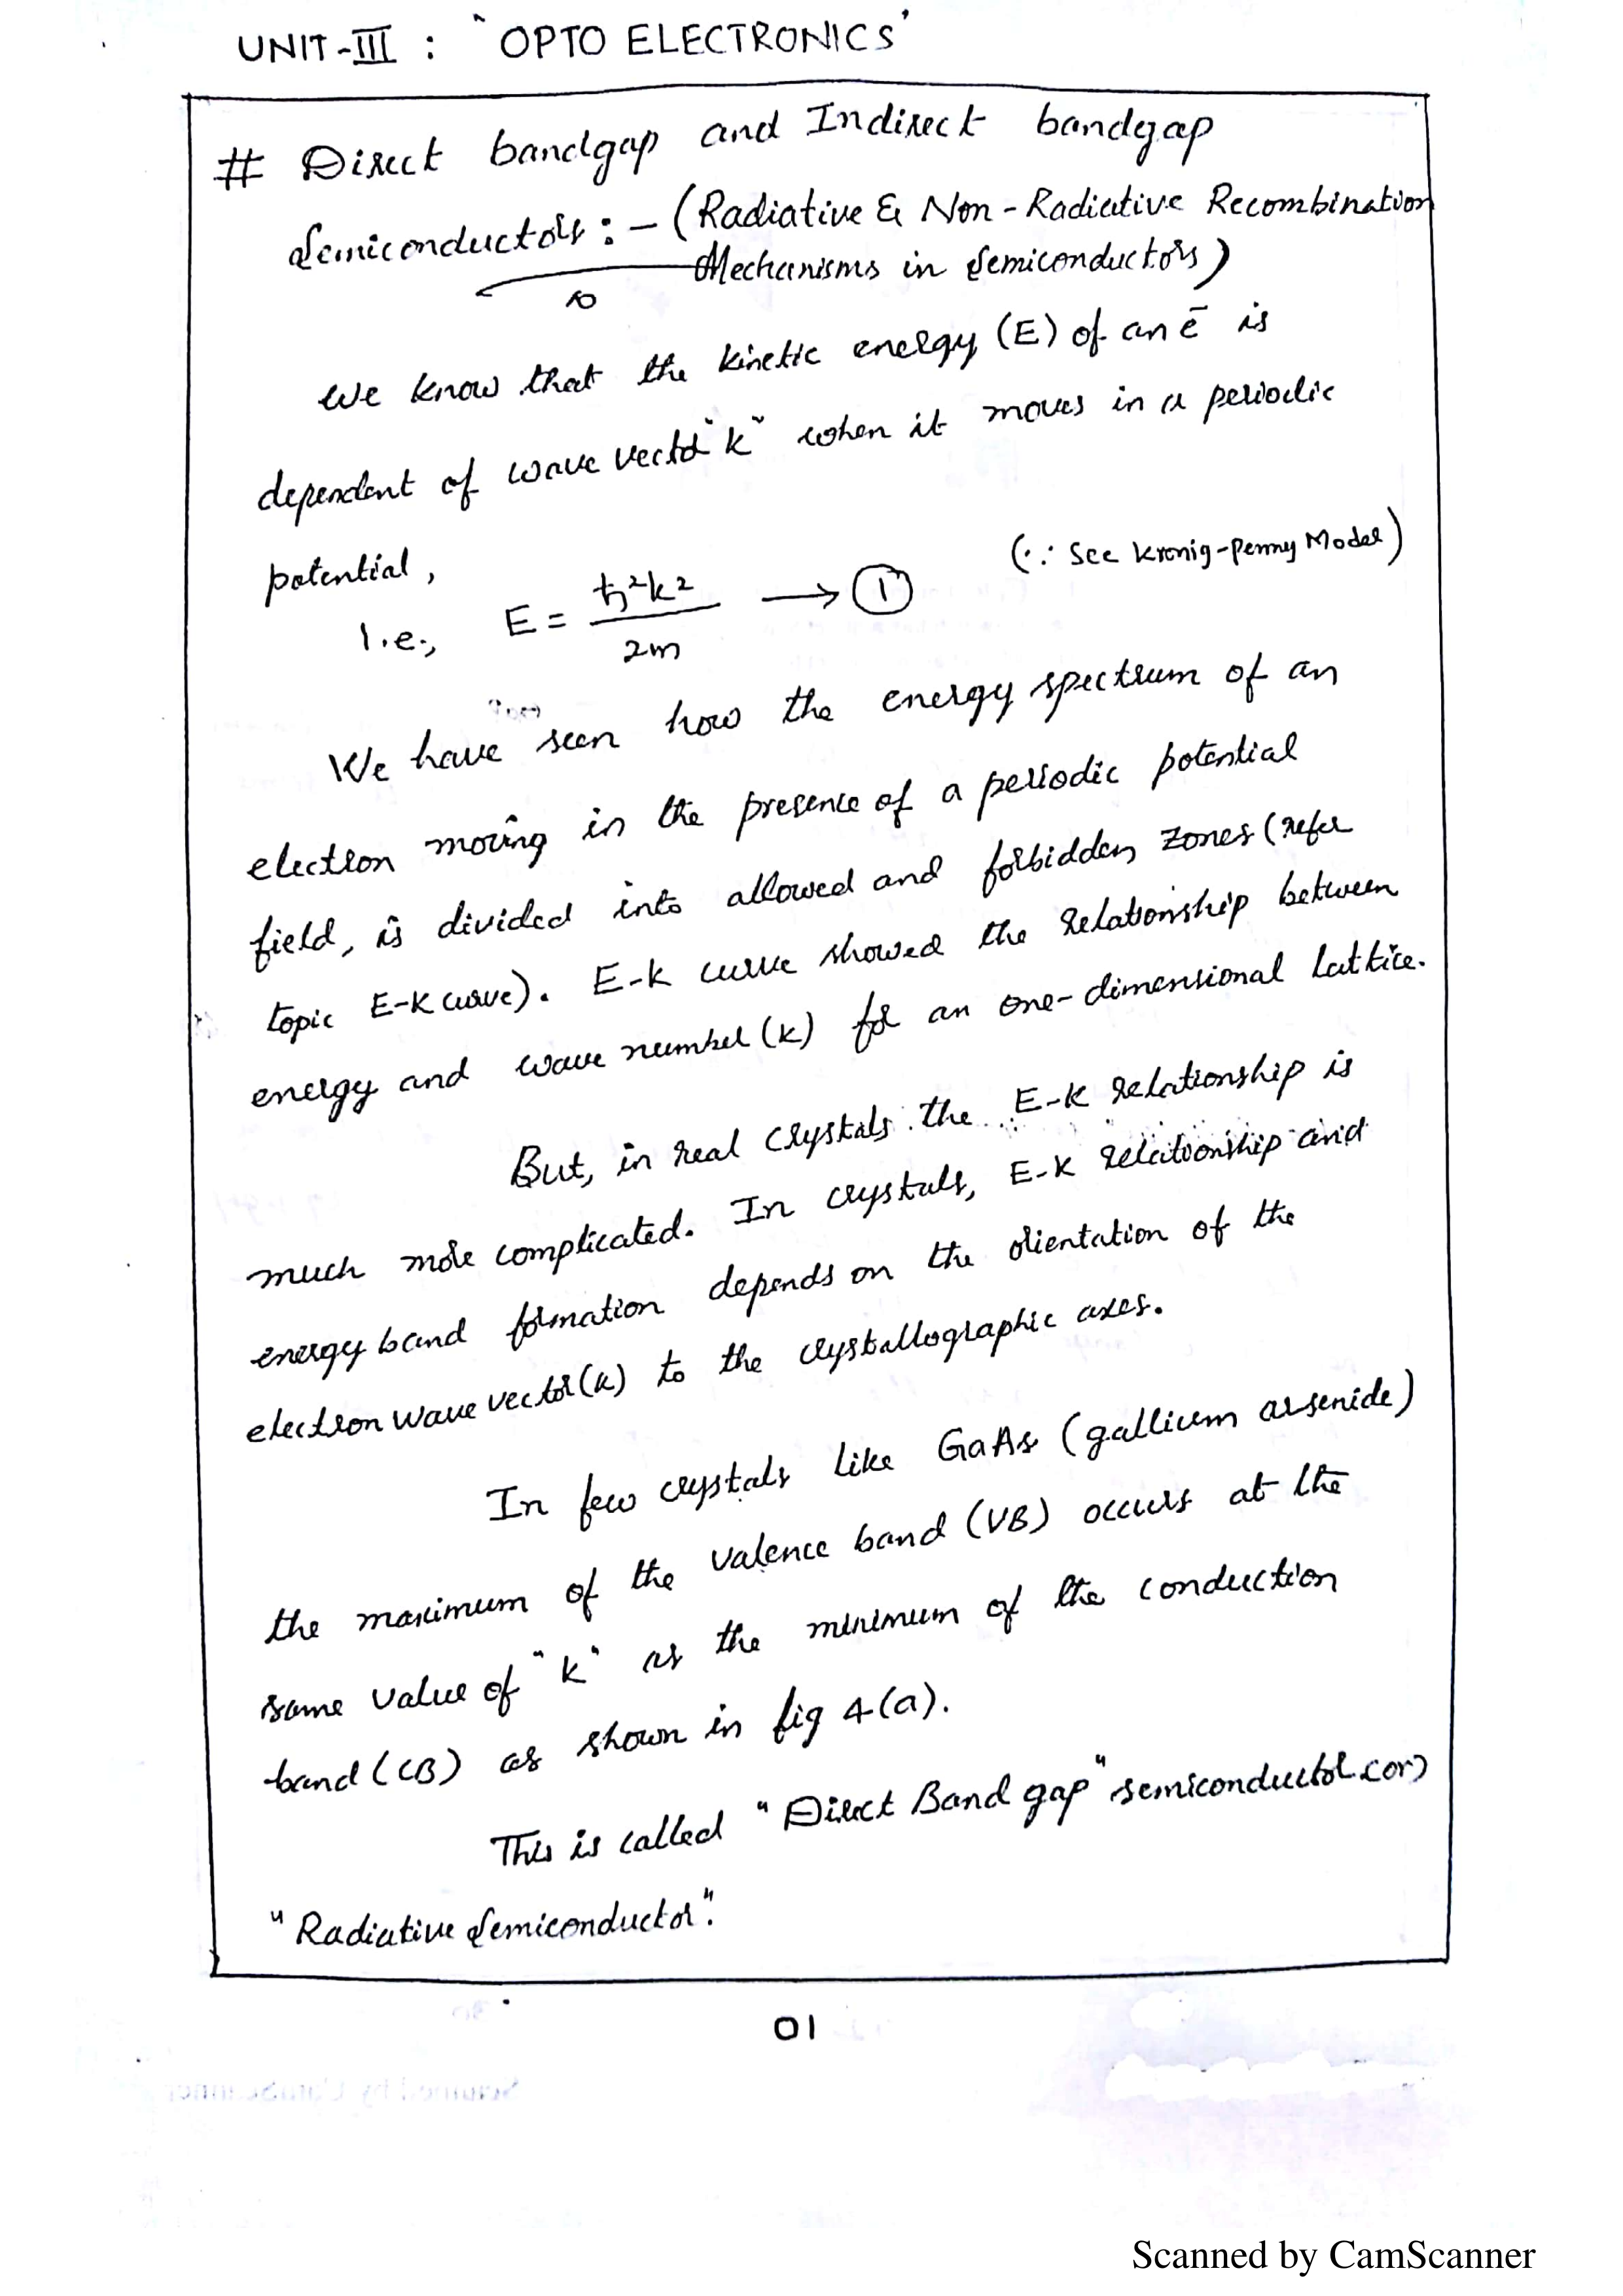 UNIT-III : "OPTO ELECTRONICS"
# Direct bandgap and Indirect bandgap
Semiconductors:- (Radiative & Non-Radiative Recombination
Mechanisms in Semiconductors)
We know that the kinetic energy (E) of an ē is
dependent of wave vector "k" when it moves in a periodic
potential,
(∵ See Kronig-Penny Model)
I.e., E = ħ²k²/2m → ①
We have seen how the energy spectrum of an
electron moving in the presence of a periodic potential
field, is divided into allowed and forbidden zones (refer
topic E-K curve). E-K curve showed the relationship between
energy and wave number (k) for an one-dimensional lattice.
But, in real crystals the E-K relationship is
much more complicated. In crystals, E-K relationship and
energy band formation depends on the orientation of the
electron wave vector (k) to the crystallographic axes.
In few crystals like GaAs (gallium arsenide)
the maximum of the valence band (VB) occurs at the
same value of "k" as the minimum of the conduction
band (CB) as shown in fig 4(a).
This is called "Direct Band gap" semiconductor (or)
"Radiative Semiconductor".
01
Scanned by CamScanner